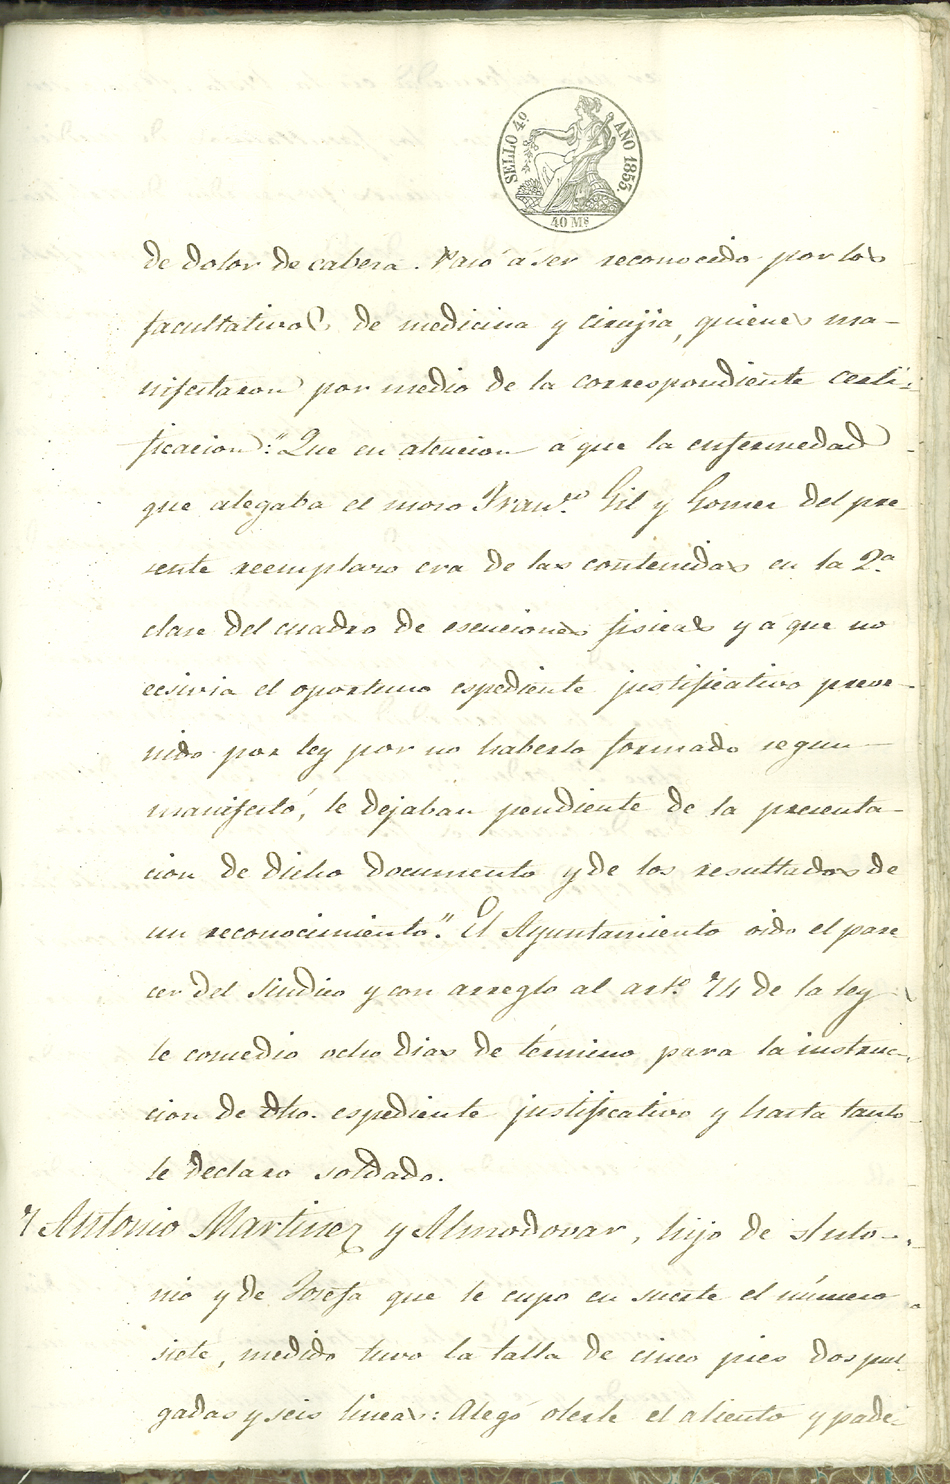 SELLO 4º AÑO 1855.
40 Ms
de dolor de cabeza. Pasó á ser reconocido por los
facultativos de medicina y cirujia, quienes ma-
nifestaron por medio de la correspondiente certi-
ficacion: "Que en atencion á que la enfermedad
que alegaba el mozo Franco. Gil y Gomez del pre
sente reemplazo era de las contenidas en la 2ª
clase del cuadro de esenciones fisicas y á que no
ecsivia el oportuno espediente justificativo preve-
nido por ley por no haberlo formado segun
manifestó, le dejaban pendiente de la presenta-
cion de dicho documento y de los resultados de
un reconocimiento". El Ayuntamiento oido el pare
cer del Sindico y con arreglo al arto. 74 de la ley
le concedio ocho dias de término para la instruc-
cion de dho. espediente justificativo y hasta tanto
le declaro soldado.
7 Antonio Martinez y Almodovar, hijo de Anto-
nio y de Josefa que le cupo en suerte el número
siete, medido tuvo la talla de cinco pies dos pul-
gadas y seis lineas: Alegó olerle el aliento y pade-